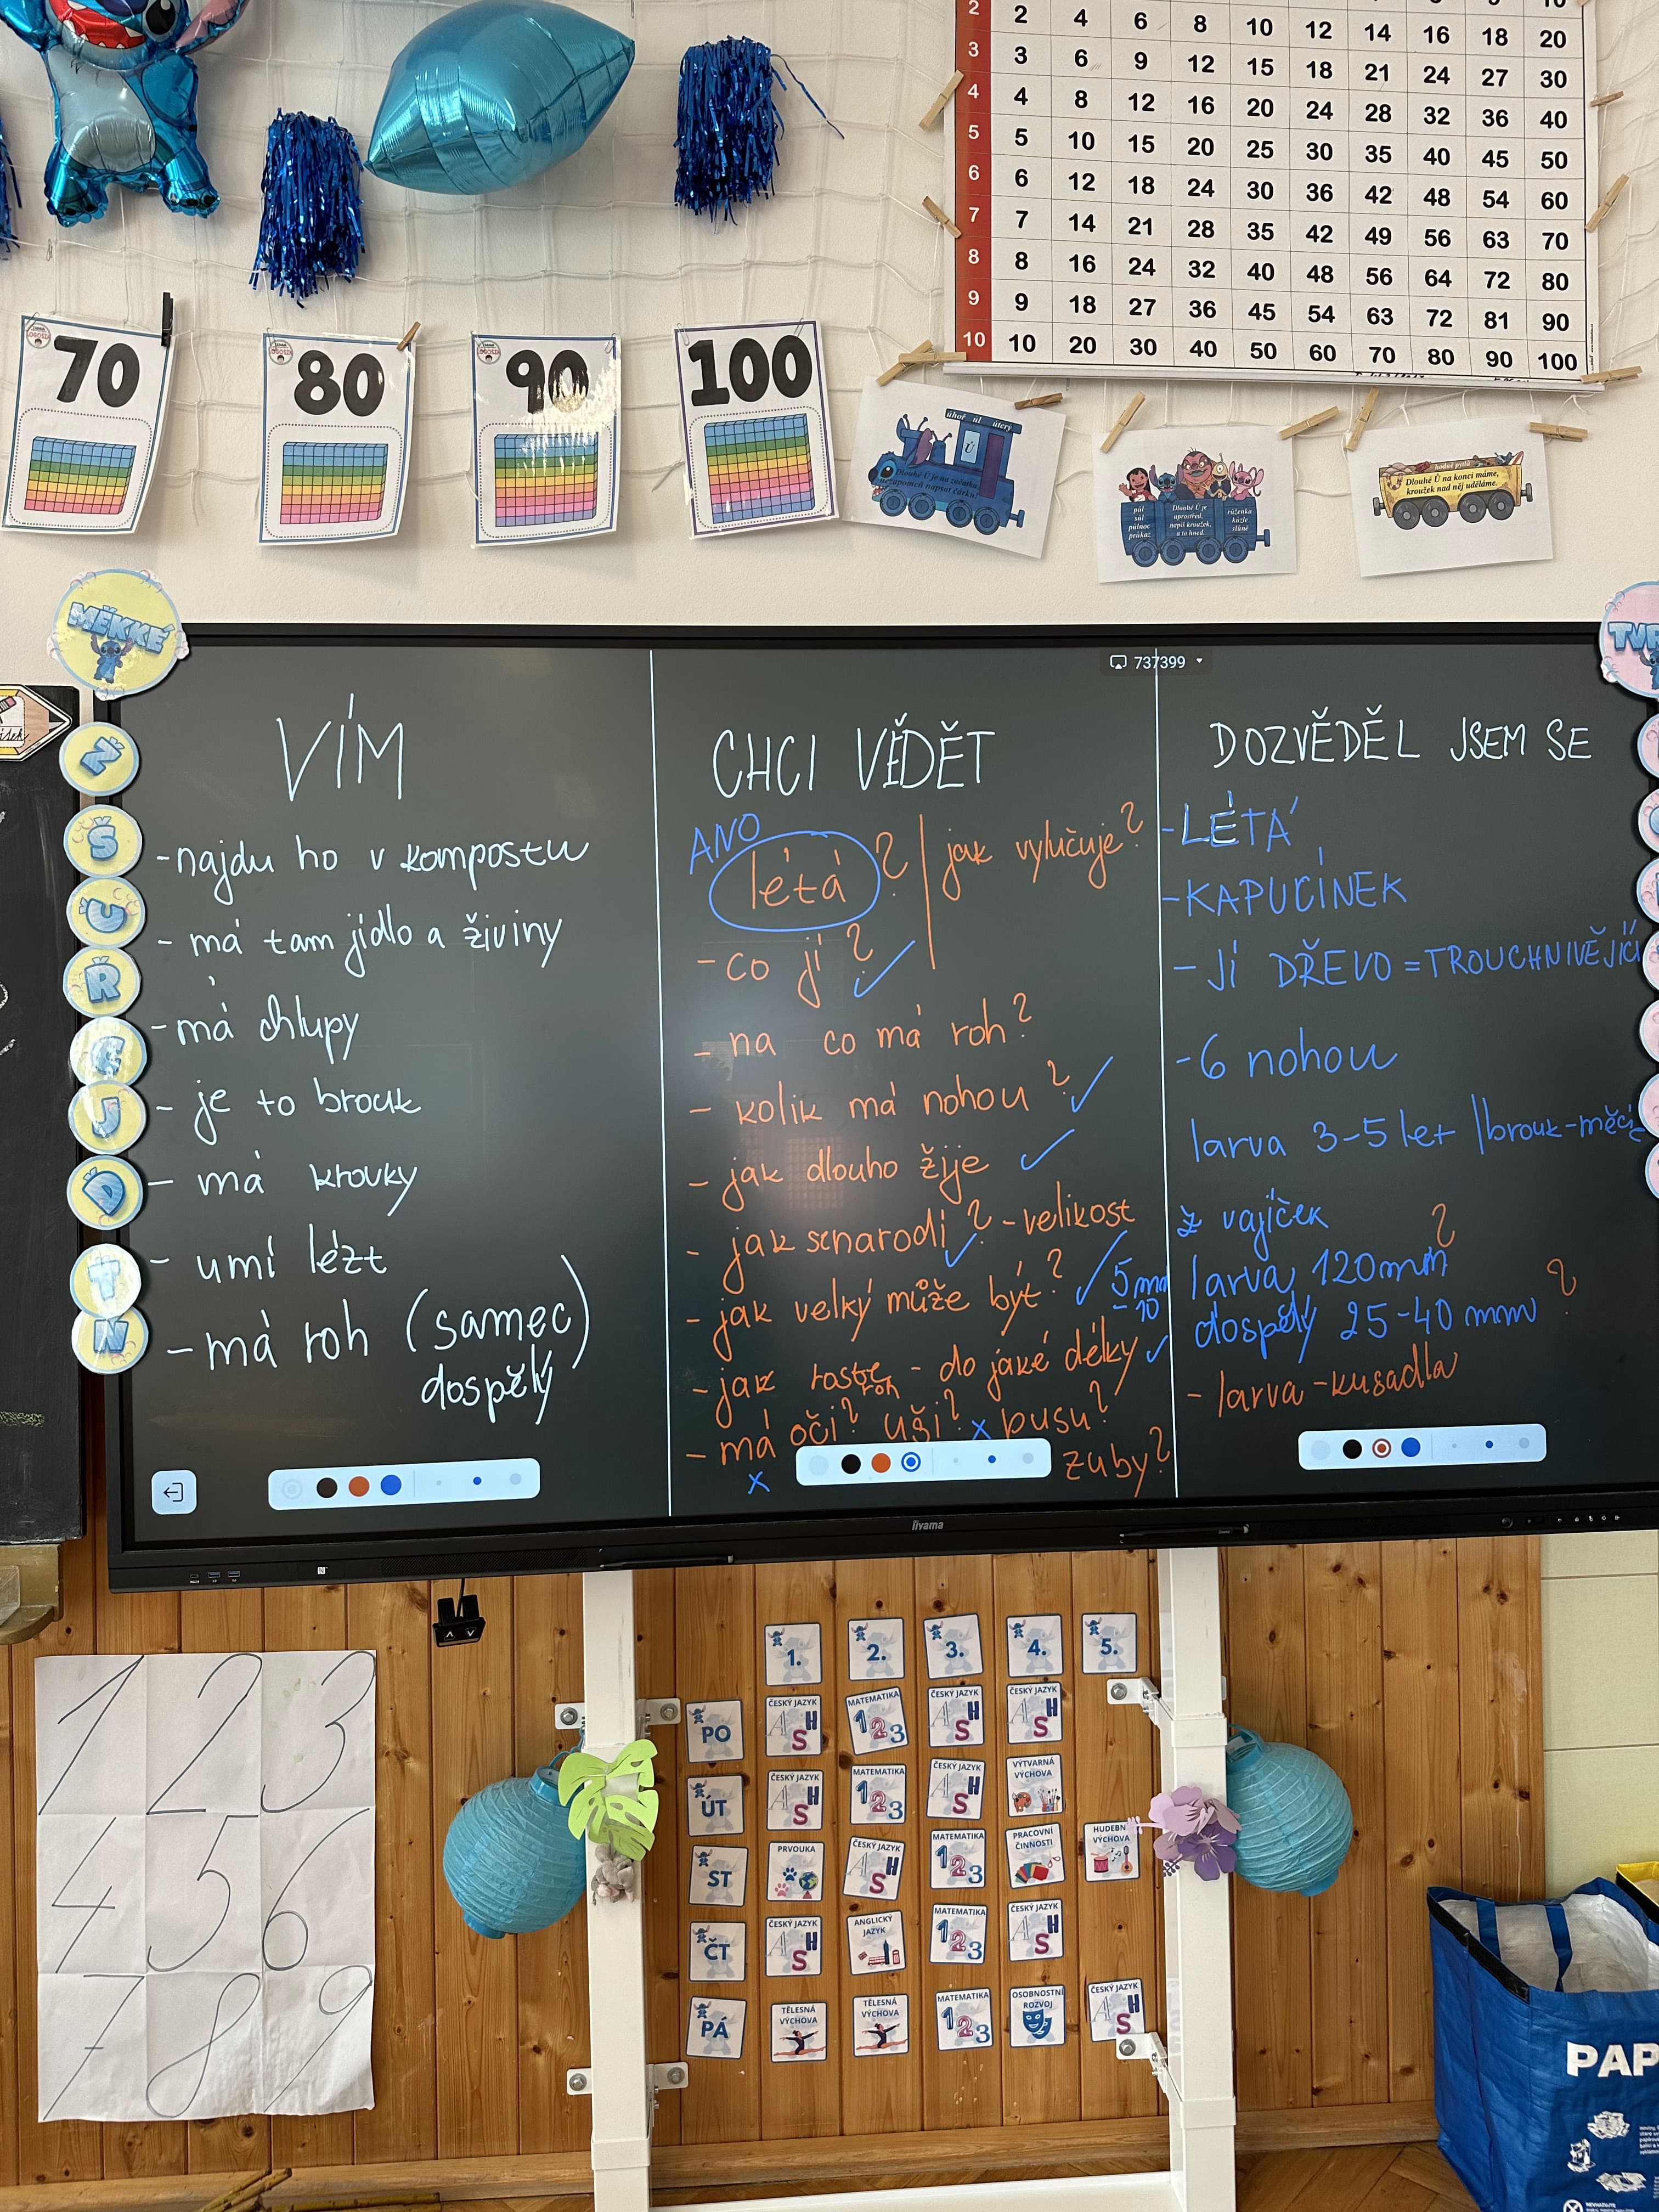 2 2 4 6 8 10 12 14 16 18 20
3 3 6 9 12 15 18 21 24 27 30
4 4 8 12 16 20 24 28 32 36 40
5 5 10 15 20 25 30 35 40 45 50
6 6 12 18 24 30 36 42 48 54 60
7 7 14 21 28 35 42 49 56 63 70
8 8 16 24 32 40 48 56 64 72 80
9 9 18 27 36 45 54 63 72 81 90
10 10 20 30 40 50 60 70 80 90 100
70
80
90
100
úhoř úl úterý
Ú
Dlouhé Ú je na začátku,
nezapomeň napsat čárku!
půl
sůl
půlnoc
průkaz
Dlouhé Ů je
uprostřed,
napiš kroužek,
a to hned.
růženka
kůzle
slůně
hodně pytlů
Dlouhé Ů na konci máme,
kroužek nad něj uděláme.
MĚKKÉ
Ž
Š
C
Ř
Č
J
Ď
Ť
Ň
737399
VÍM
-najdu ho v kompostu
- má tam jídlo a živiny
-má chlupy
- je to brouk
- má krovky
- umí lézt
- má roh (samec)
dospělý
CHCI VĚDĚT
ANO
létá?
jak vylučuje?
- co jí?
- na co má roh?
- kolik má nohou?
- jak dlouho žije
- jak se narodí? - velikost
- jak velký může být?
5 mm
- 10
- jak roste - do jaké délky
roh
- má oči? uši? x pusu?
x
zuby?
DOZVĚDĚL JSEM SE
-LÉTÁ
-KAPUCÍNEK
-JÍ DŘEVO = TROUCHNIVĚJÍCÍ
-6 nohou
larva 3-5 let | brouk-měsíc
z vajíček
?
larva 120mm
?
dospělý 25-40 mm
- larva - kusadla
iiyama
1 2 3
4 5 6
7 8 9
1. 2. 3. 4. 5.
PO ČESKÝ JAZYK MATEMATIKA ČESKÝ JAZYK ČESKÝ JAZYK
ÚT ČESKÝ JAZYK MATEMATIKA ČESKÝ JAZYK VÝTVARNÁ VÝCHOVA
ST PRVOUKA ČESKÝ JAZYK MATEMATIKA PRACOVNÍ ČINNOSTI HUDEBNÍ VÝCHOVA
ČT ČESKÝ JAZYK ANGLICKÝ JAZYK MATEMATIKA ČESKÝ JAZYK
PÁ TĚLESNÁ VÝCHOVA TĚLESNÁ VÝCHOVA MATEMATIKA OSOBNOSTNÍ ROZVOJ ČESKÝ JAZYK
PAP